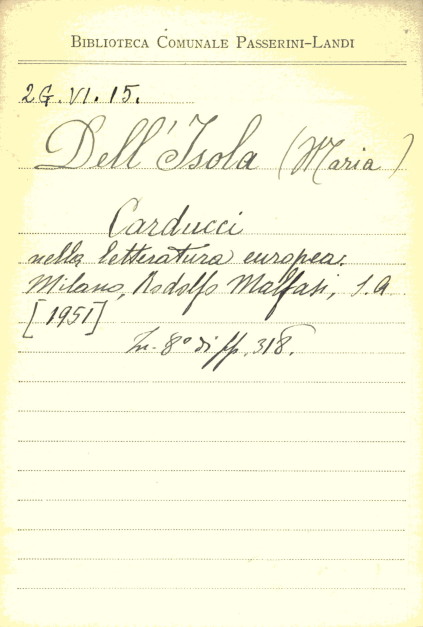 BIBLIOTECA COMUNALE PASSERINI-LANDI
2G.VI.15.
Dell'Isola (Maria)
Carducci
nella letteratura europea.
Milano, Rodolfo Malfasi, S.A
[1951]
In-8° di pp. 318.